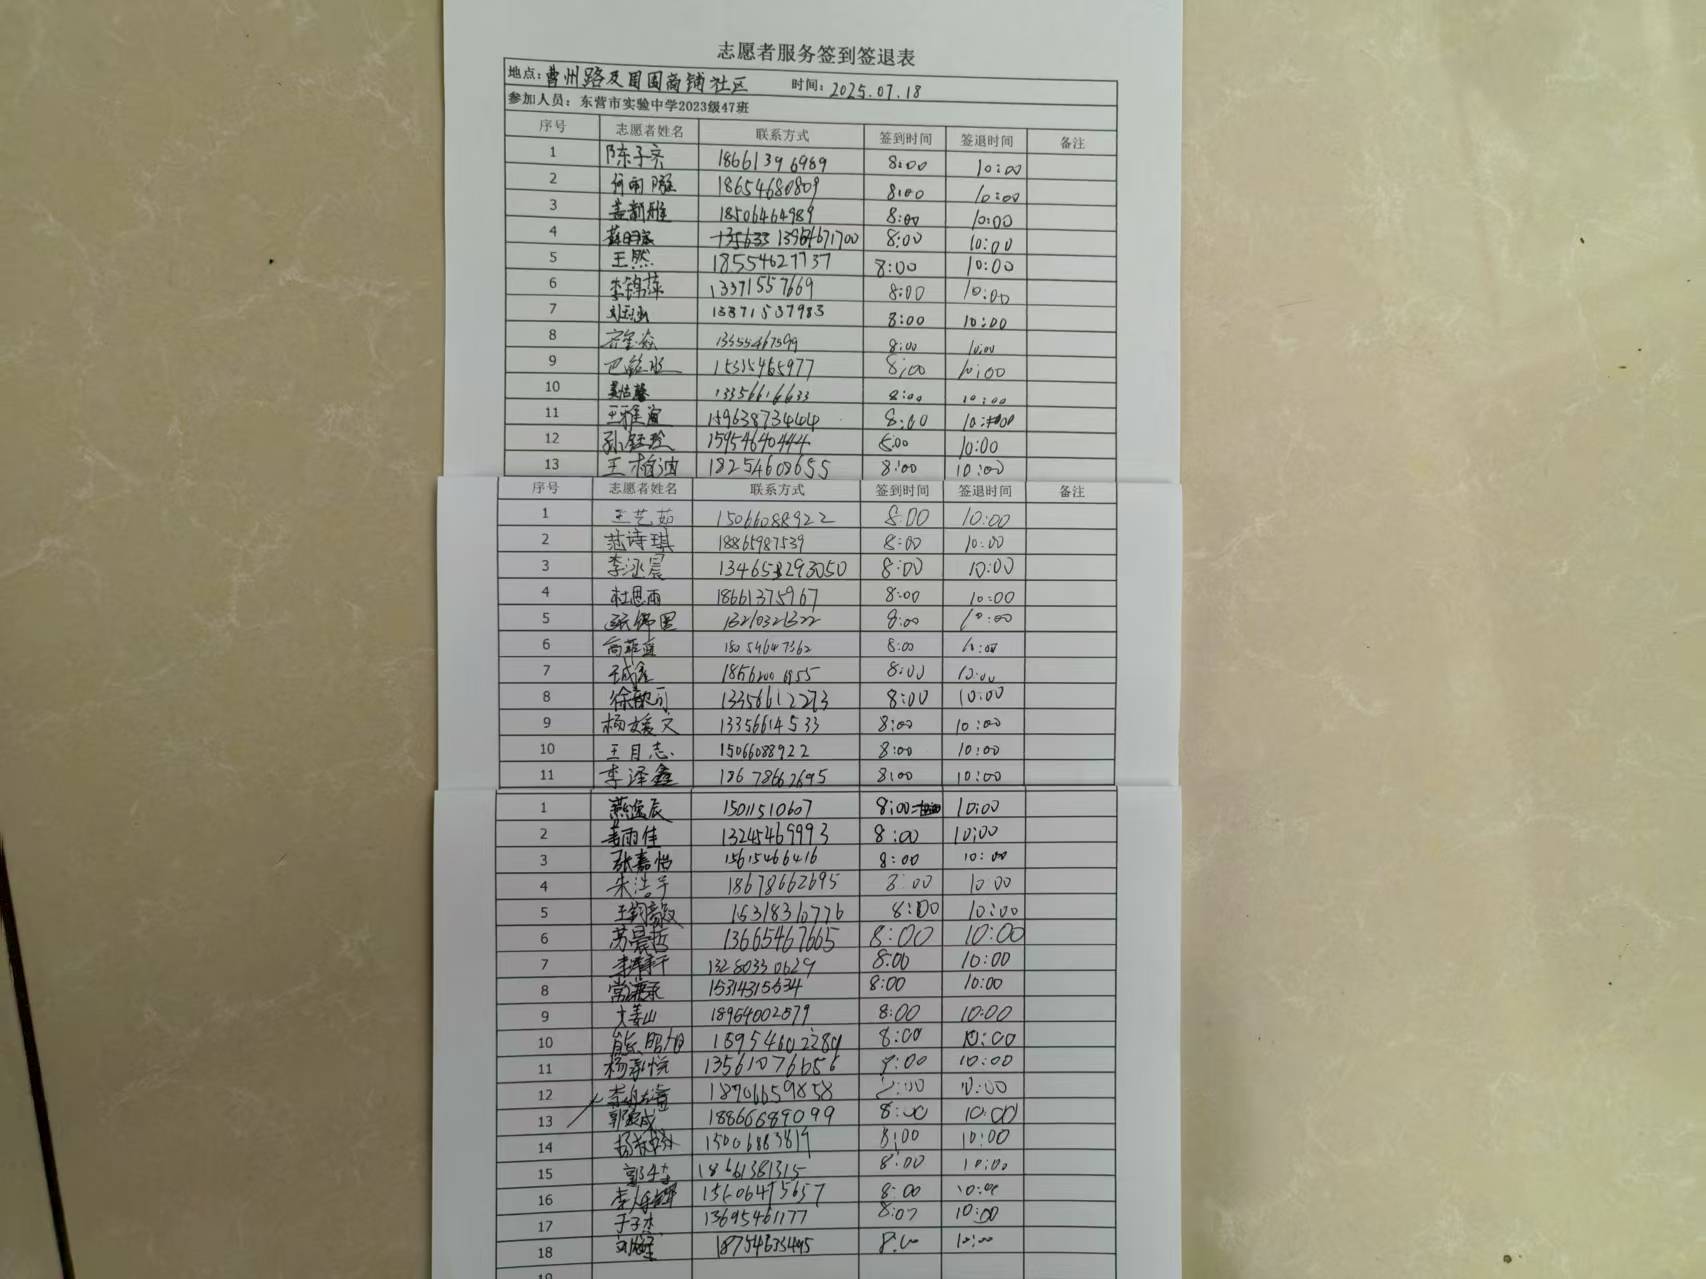 志愿者服务签到签退表
地点：曹州路及周围商铺社区 时间：2025.07.18
参加人员：东营市实验中学2023级47班
序号 志愿者姓名 联系方式 签到时间 签退时间 备注
1 陈子亦 18661396989 8:00 10:00
2 何雨 18654680809 8:00 10:00
3 18506464989 8:00 10:00
4 8:00 10:00
5 王然 18554627737 8:00 10:00
6 李锦萍 13371557669 8:00 10:00
7 13371537983 8:00 10:00
8 13355467599 8:00 10:00
9 15315465977 8:00 10:00
10 13356616633 8:00 10:00
11 王雅萱 15963873444 8:00 10:00
12 孙钰玲 15954640444 8:00 10:00
13 王柏迪 18254608655 8:00 10:00
序号 志愿者姓名 联系方式 签到时间 签退时间 备注
1 王艺茹 15066088922 8:00 10:00
2 范诗琪 18865987539 8:00 10:00
3 李泳宸 8:00 10:00
4 杜思雨 18661375967 8:00 10:00
5 8:00 10:00
6 18054647362 8:00 10:00
7 8:00 10:00
8 徐歆可 13356612273 8:00 10:00
9 杨媛文 13356614533 8:00 10:00
10 王目志 15066088922 8:00 10:00
11 李泽鑫 18678662695 8:00 10:00
1 燕逸辰 15011510607 8:00 10:00
2 姜雨佳 13245469993 8:00 10:00
3 张嘉怡 15615466416 8:00 10:00
4 朱浩宇 18678662695 8:00 10:00
5 王钧毅 15318310776 8:00 10:00
6 苏晨哲 13665467665 8:00 10:00
7 13280330629 8:00 10:00
8 15314315634 8:00 10:00
9 8:00 10:00
10 熊昭旭 15954602280 8:00 10:00
11 杨承悦 13561076656 10:00
12 18706659858 10:00
13 18866689099 8:00 10:00
14 15006883819 8:00 10:00
15 18661381315 8:00 10:00
16 15606475657 8:00 10:00
17 于子杰 13695461177 8:00 10:00
18 18754633495 8:00 10:00